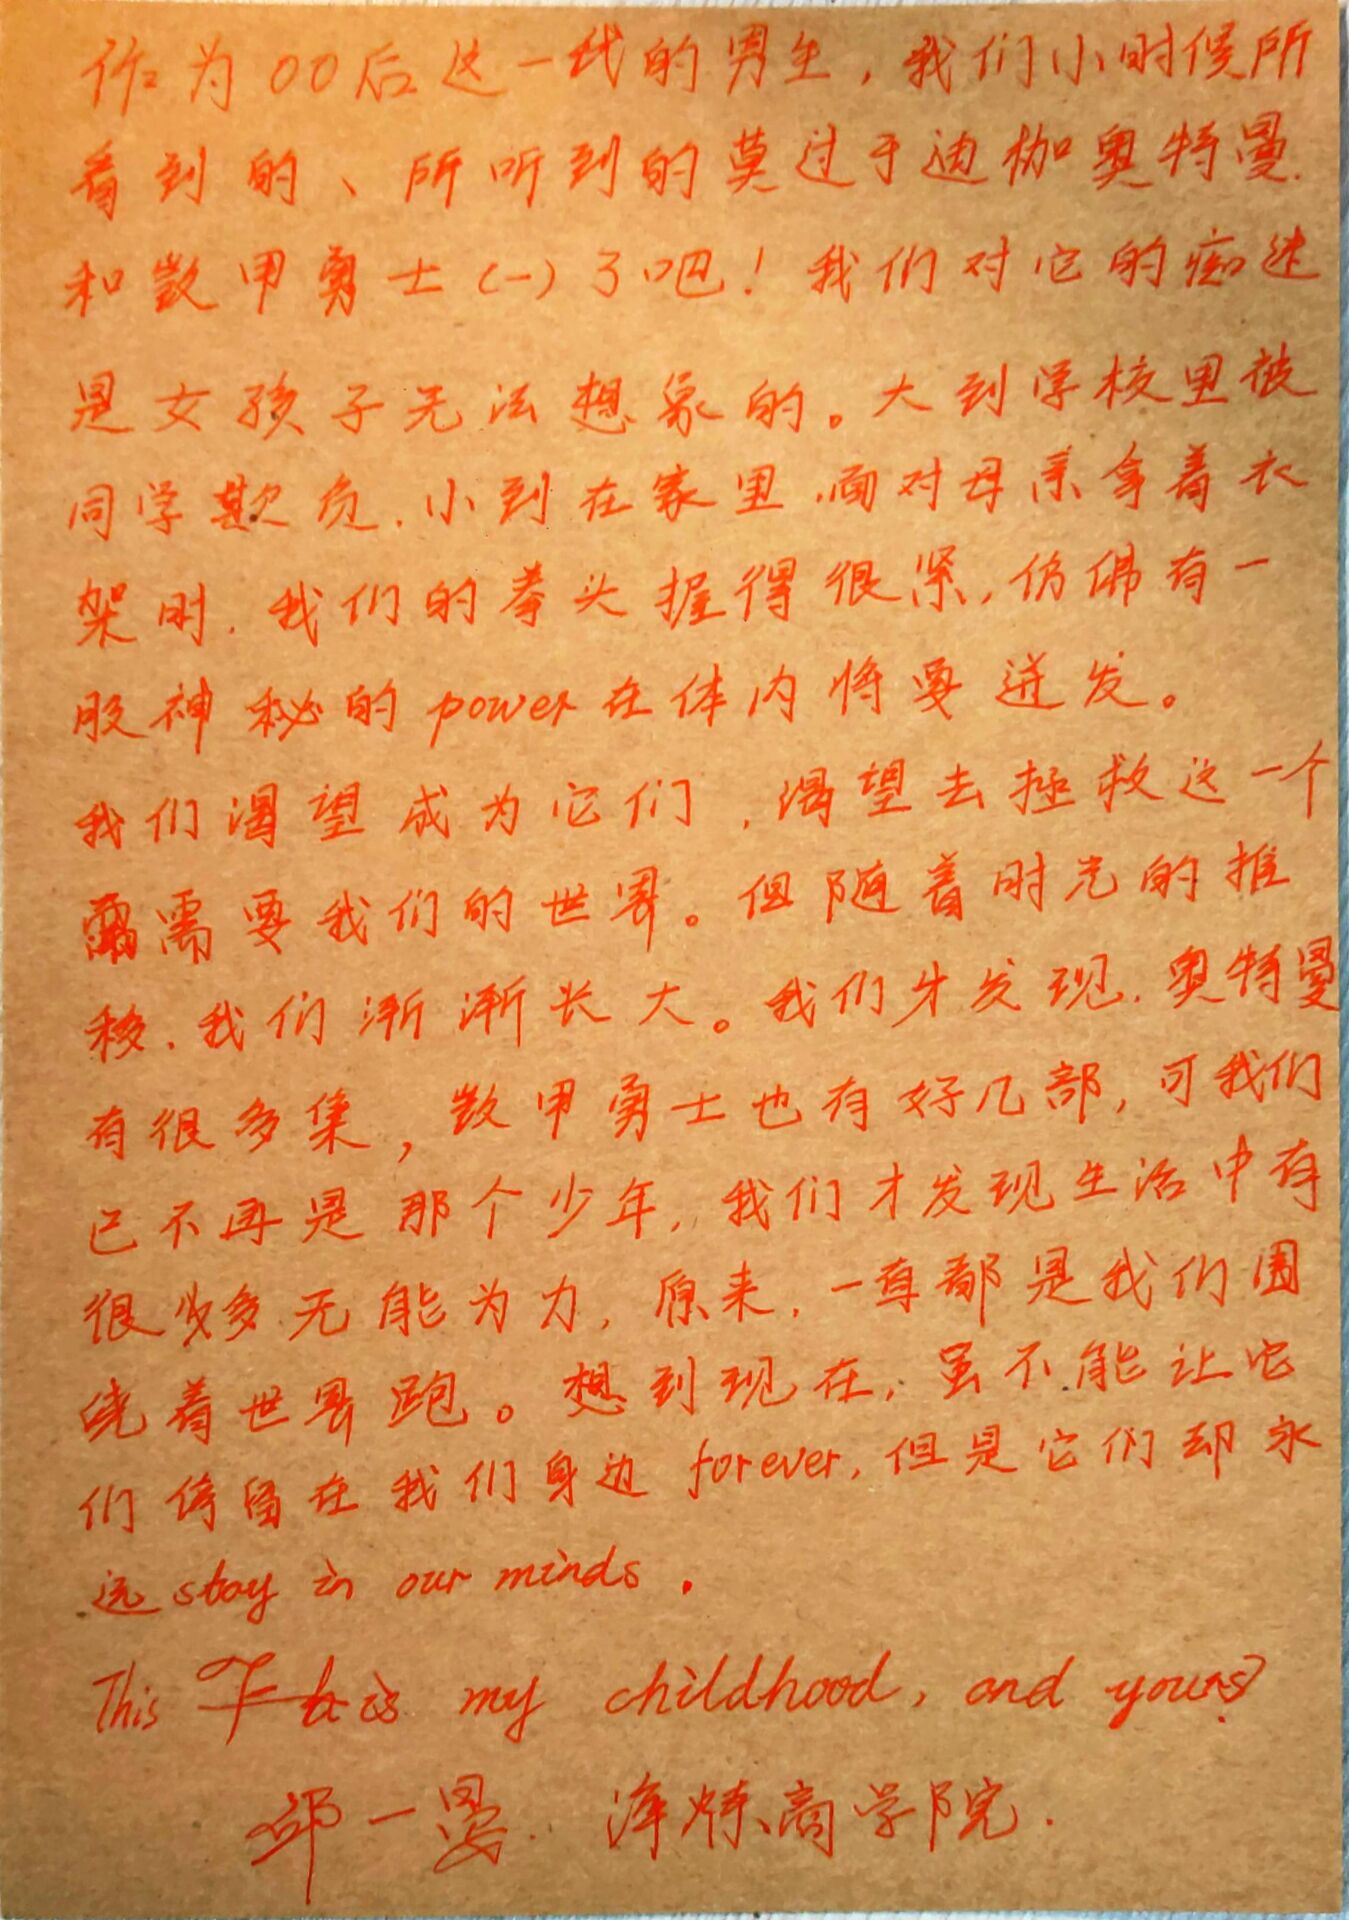 作为00后这一代的男生，我们小时候所
看到的、所听到的莫过于迪枷奥特曼
和数甲勇士(一)了吧！我们对它的痴迷
是女孩子无法想象的。大到学校里被
同学欺负，小到在家里，面对母亲拿着衣
架时，我们的拳头握得很紧，仿佛有一
股神秘的power在体内将要迸发。
我们渴望成为它们，渴望去拯救这一个
需要我们的世界。但随着时光的推
移，我们渐渐长大。我们才发现，奥特曼
有很多集，数甲勇士也有好几部，可我们
已不再是那个少年，我们才发现生活中有
很多无能为力，原来，一直都是我们围
绕着世界跑。想到现在，虽不能让它
们停留在我们身边forever，但是它们却永
远stay in our minds.
This is my childhood, and yours?
邱一晏. 商学院.